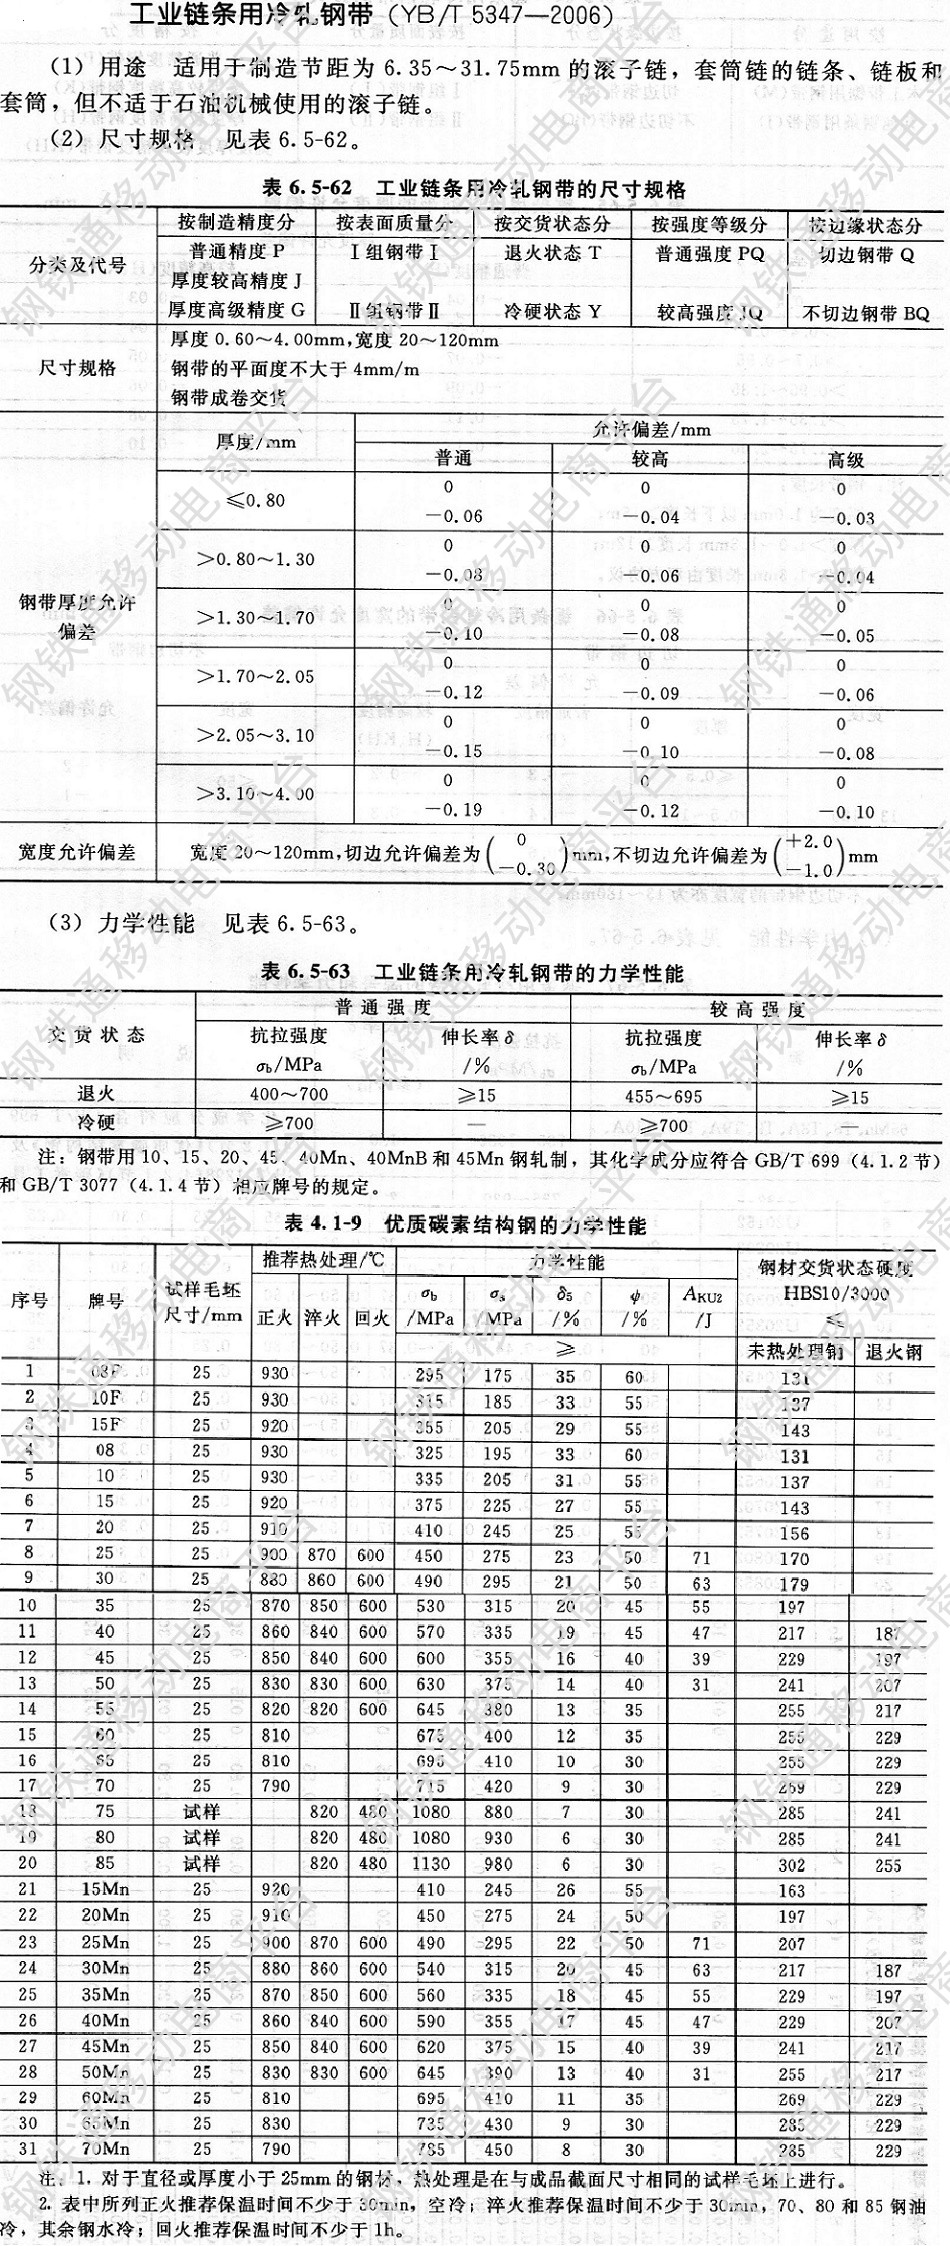 工业链条用冷轧钢带 (YB/T 5347—2006)
(1) 用途 适用于制造节距为 6.35～31.75mm 的滚子链，套筒链的链条、链板和
套筒，但不适于石油机械使用的滚子链。
(2) 尺寸规格 见表 6.5-62。
表 6.5-62 工业链条用冷轧钢带的尺寸规格
分类及代号 按制造精度分 按表面质量分 按交货状态分 按强度等级分 按边缘状态分
普通精度 P Ⅰ组钢带Ⅰ 退火状态 T 普通强度 PQ 切边钢带 Q
厚度较高精度 J
厚度高级精度 G Ⅱ组钢带Ⅱ 冷硬状态 Y 较高强度 JQ 不切边钢带 BQ
尺寸规格 厚度 0.60～4.00mm,宽度 20～120mm
钢带的平面度不大于 4mm/m
钢带成卷交货
钢带厚度允许偏差 厚度/mm 允许偏差/mm
普通 较高 高级
≤0.80 0 −0.06 0 −0.04 0 −0.03
>0.80～1.30 0 −0.08 0 −0.06 0 −0.04
>1.30～1.70 0 −0.10 0 −0.08 0 −0.05
>1.70～2.05 0 −0.12 0 −0.09 0 −0.06
>2.05～3.10 0 −0.15 0 −0.10 0 −0.08
>3.10～4.00 0 −0.19 0 −0.12 0 −0.10
宽度允许偏差 宽度 20～120mm,切边允许偏差为(0 −0.30)mm,不切边允许偏差为(+2.0 −1.0)mm
(3) 力学性能 见表 6.5-63。
表 6.5-63 工业链条用冷轧钢带的力学性能
交货状态 普通强度 较高强度
抗拉强度 σb/MPa 伸长率 δ /% 抗拉强度 σb/MPa 伸长率 δ /%
退火 400～700 ≥15 455～695 ≥15
冷硬 ≥700 — ≥700 —
注：钢带用 10、15、20、45、40Mn、40MnB 和 45Mn 钢轧制，其化学成分应符合 GB/T 699 (4.1.2 节)
和 GB/T 3077 (4.1.4 节) 相应牌号的规定。
表 4.1-9 优质碳素结构钢的力学性能
序号 牌号 试样毛坯尺寸/mm 推荐热处理/℃ 力学性能 钢材交货状态硬度 HBS10/3000 ≤
正火 淬火 回火 σb /MPa σs /MPa δ5 /% ψ /% AKU2 /J
≥ 未热处理钢 退火钢
1 08F 25 930 295 175 35 60 131
2 10F 25 930 315 185 33 55 137
3 15F 25 920 355 205 29 55 143
4 08 25 930 325 195 33 60 131
5 10 25 930 335 205 31 55 137
6 15 25 920 375 225 27 55 143
7 20 25 910 410 245 25 55 156
8 25 25 900 870 600 450 275 23 50 71 170
9 30 25 880 860 600 490 295 21 50 63 179
10 35 25 870 850 600 530 315 20 45 55 197
11 40 25 860 840 600 570 335 19 45 47 217 187
12 45 25 850 840 600 600 355 16 40 39 229 197
13 50 25 830 830 600 630 375 14 40 31 241 207
14 55 25 820 820 600 645 380 13 35 255 217
15 60 25 810 675 400 12 35 255 229
16 65 25 810 695 410 10 30 255 229
17 70 25 790 715 420 9 30 269 229
18 75 试样 820 480 1080 880 7 30 285 241
19 80 试样 820 480 1080 930 6 30 285 241
20 85 试样 820 480 1130 980 6 30 302 255
21 15Mn 25 920 410 245 26 55 163
22 20Mn 25 910 450 275 24 50 197
23 25Mn 25 900 870 600 490 295 22 50 71 207
24 30Mn 25 880 860 600 540 315 20 45 63 217 187
25 35Mn 25 870 850 600 560 335 18 45 55 229 197
26 40Mn 25 860 840 600 590 355 17 45 47 229 207
27 45Mn 25 850 840 600 620 375 15 40 39 241 217
28 50Mn 25 830 830 600 645 390 13 40 31 255 217
29 60Mn 25 810 695 410 11 35 269 229
30 65Mn 25 830 735 430 9 30 285 229
31 70Mn 25 790 785 450 8 30 285 229
注：1. 对于直径或厚度小于 25mm 的钢材，热处理是在与成品截面尺寸相同的试样毛坯上进行。
2. 表中所列正火推荐保温时间不少于 30min，空冷；淬火推荐保温时间不少于 30min，70、80 和 85 钢油
冷，其余钢水冷；回火推荐保温时间不少于 1h。
钢铁通移动电商平台